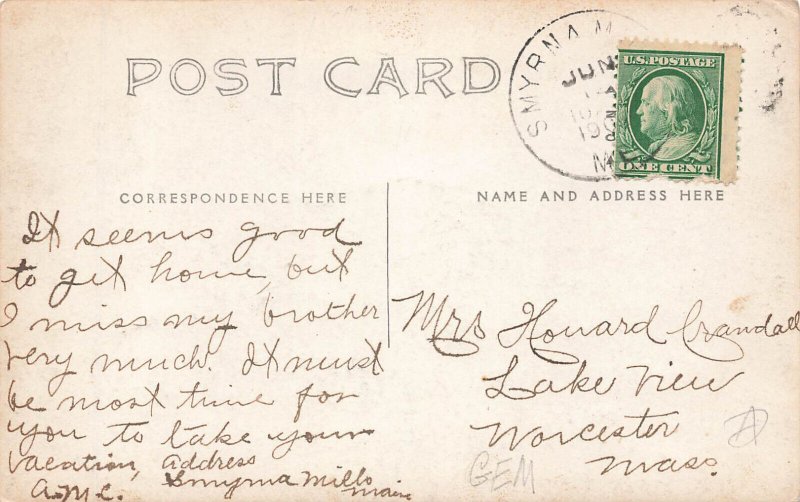 POST CARD
SMYRNA M
JUN
190
ME
U.S. POSTAGE
ONE CENT
CORRESPONDENCE HERE
NAME AND ADDRESS HERE
It seems good
to get home, but
I miss my brother
very much. It must
be most time for
you to take your
vacation, address
A.M.C. Smyrna Mills
Maine
Mrs Howard Crandall
Lake View
Worcester
Mass.
GEM